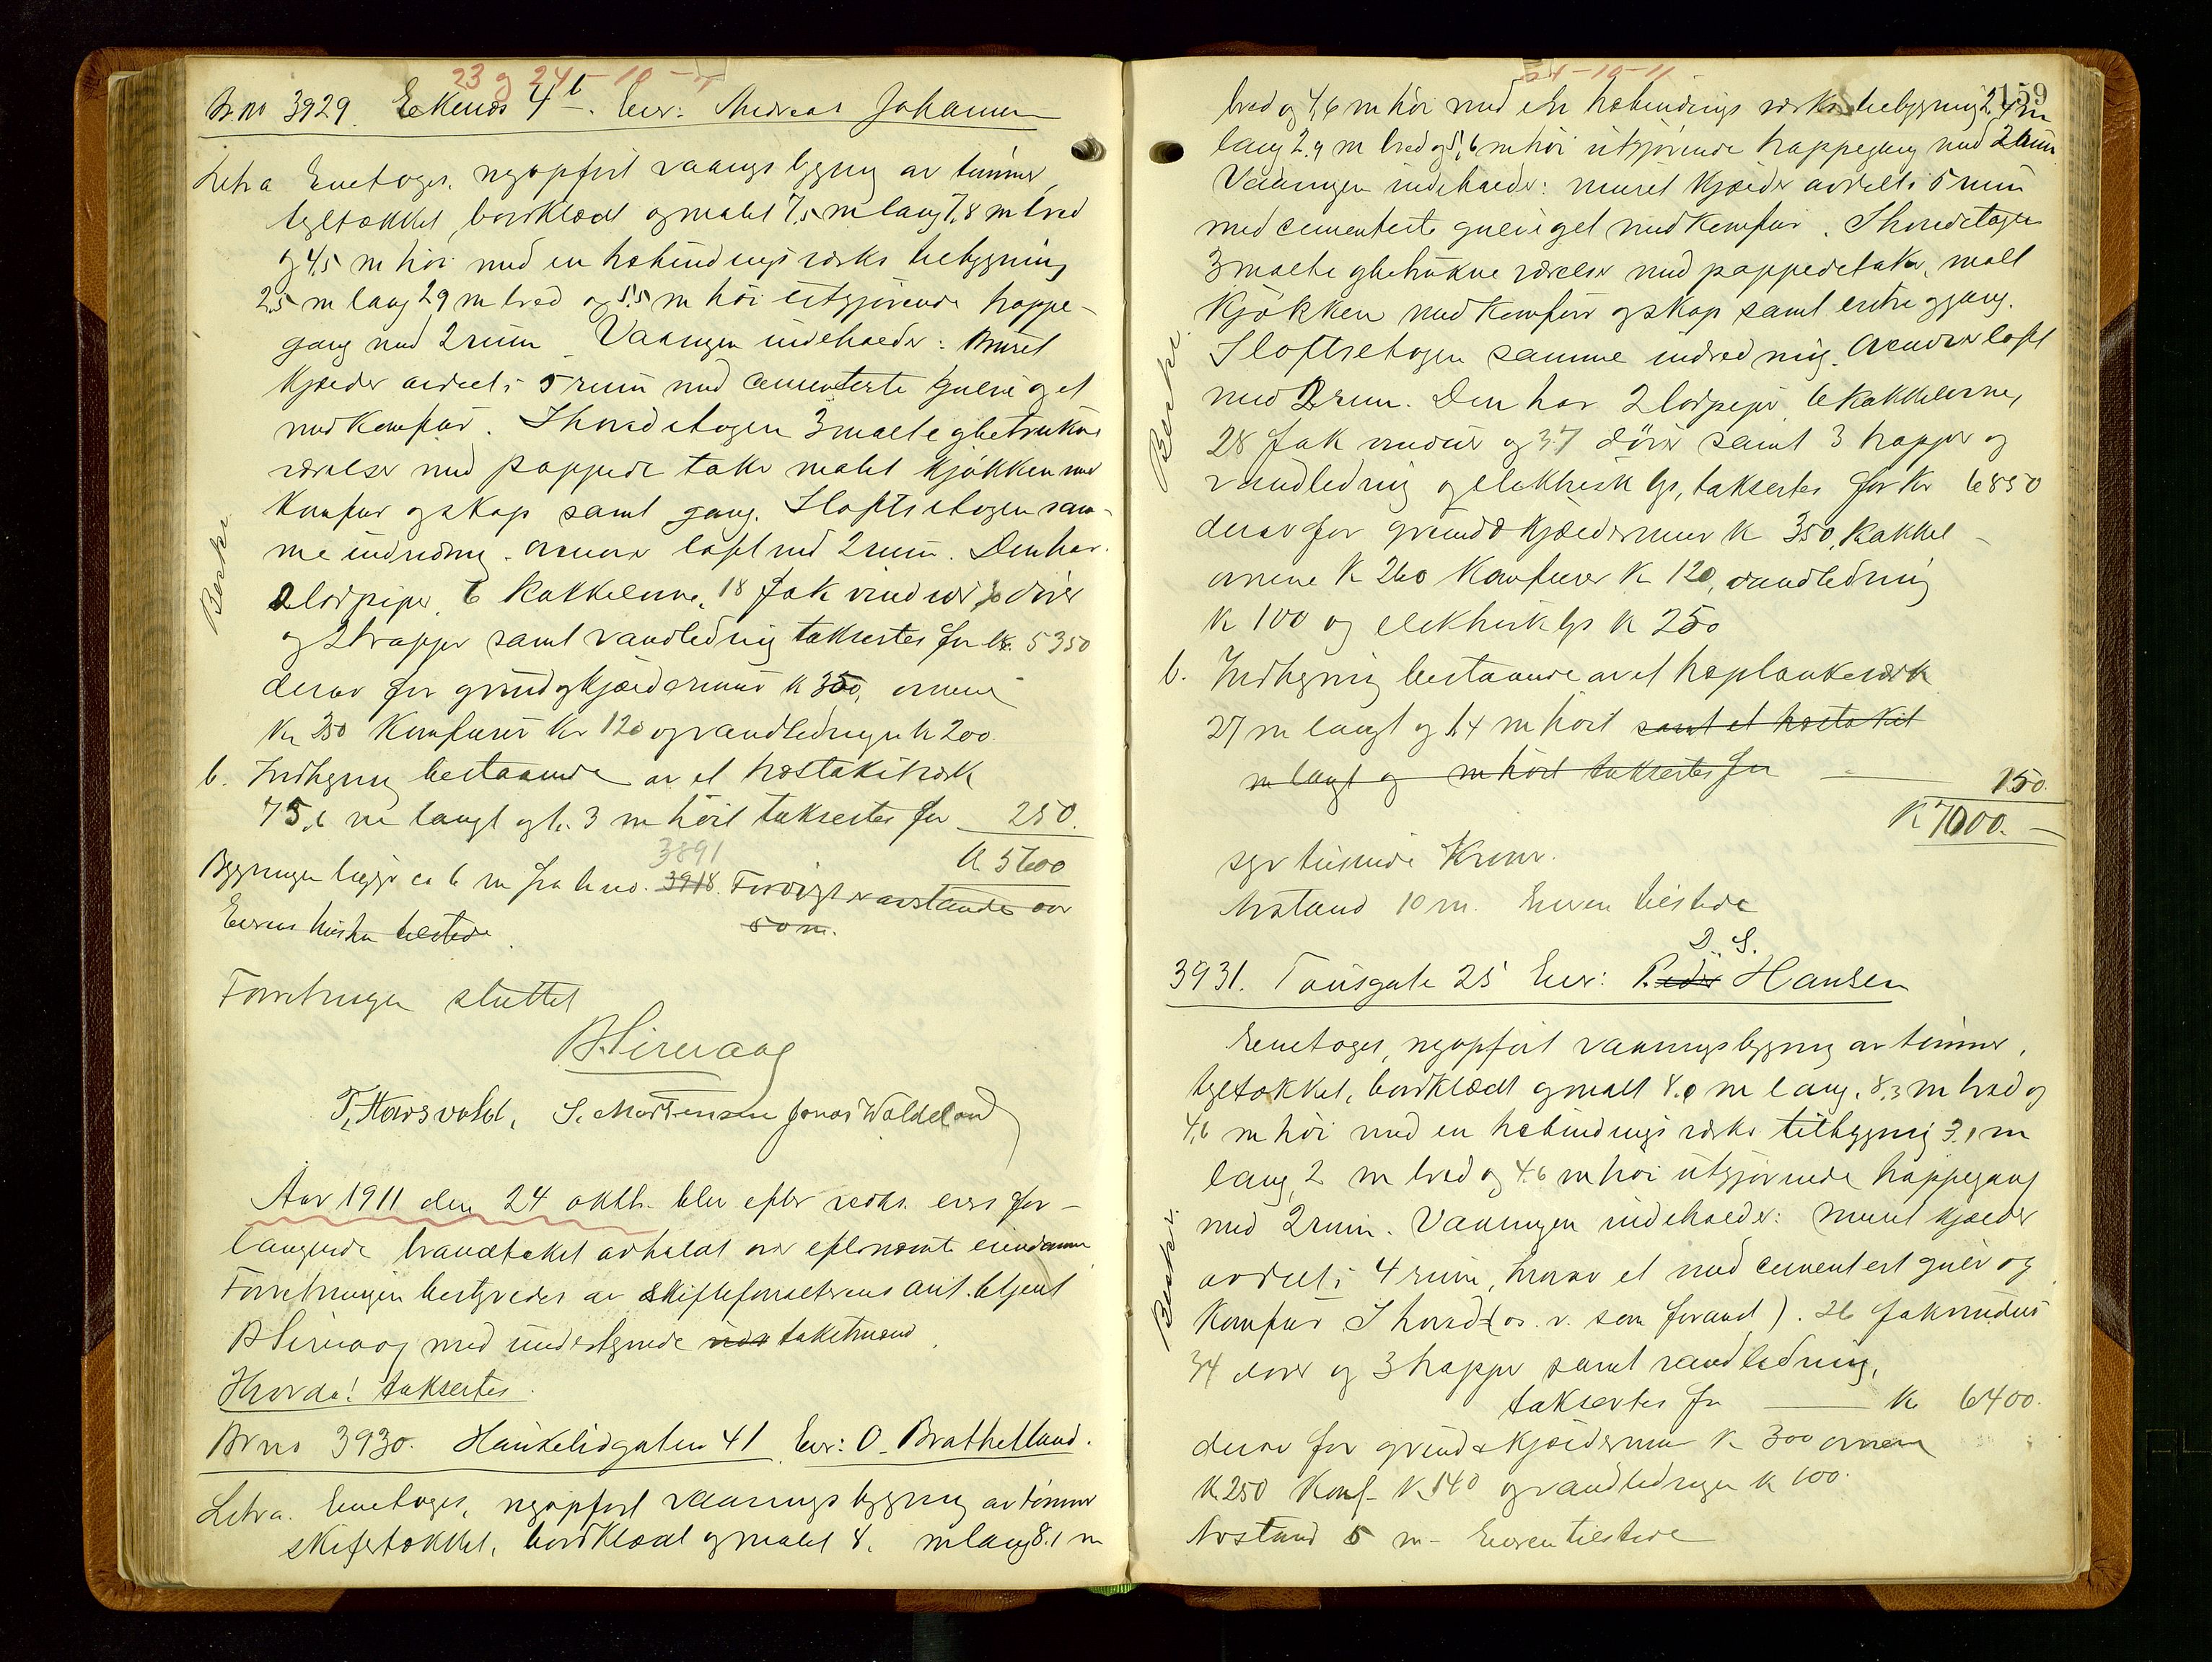 23 og 24 - 10 - 11
Br.no 3929. Ekenæs 4 b. Eier: Andreas Johansen
Litra Enetages, nyopført vaaningsbygning av tømmer,
tegltækket, bordklædt og malet 7,5 m lang 7,8 m bred
og 4,5 m høi med en træbindingsverks tilbygning
2,5 m lang 2,9 m bred og 5,5 m høi utgjørende trappe-
gang med 2 rum. Vaaningen indeholder: Muret
kjælder avdelt i 5 rum med cementerte gulv i g et
med komfur. I hovedetagen 3 malte og betrukne
værelser med pappede take malet kjøkken med
komfur og skap samt gang. I loftsetagen sam-
me indredning. Ovenover loft med 2 rum. Den har
2 lodpiper, 6 kakkelovne, 18 fak vinduer, dører
og 2 trapper samt vandledning taksertes for kr. 5350
Beskr.
derav for grund og kjældermur kr 350, ovnene
Kr 250 Komfurer kr 120 og vandledningen kr 200.
b. Indhegning bestaaende av et træstakitverk
75,6 m langt og 1.3 m høit takseres for 250.
3891 K 5600
Bygningen ligger ca 6 m fra br.no. 3918. Forøvrigt er avstanden over
50 m.
Eierens hustru tilstede.
Forretningen sluttet
B Sirevaag
T. Hørsvold, S. Mortensen Jonas Waldeland
Aar 1911 den 24 oktbr. blev efter vedk. eiers for-
langende brandtakst avholdt over efternævnte eiendomme
Forretningen bestyredes av skifteforvalterens aut. betjent
B Sirevaag med undertegnede takstmænd.
Hvorda! taksertes
Br no 3930. Haukelidgaten 41 Eier: O. Brathetland.
Litra. Enetages, nyopført vaaningsbygning av tømmer
skifertækket, bordklædt og malet 8, m lang 8.1 m
24-10-11
159
bred og 4,6 m høi med en træbindings verks tilbygning 2,4 m
lang 2.9 m bred og 5,6 m høi utgjørende trappegang med 2 rum
Vaaningen indeholder: muret kjælder avdelt i 5 rum
med cementerte gulv i g et med komfur. I hovedetagen
3 malte og betrukne værelser med pappede take, malt
kjøkken med komfur og skap samt entre og gang.
I loftsetagen samme indredning. Ovenover loft
med 2 rum. Den har 2 lodpiper 6 kakkelovne,
28 fak vinduer og 37 dører samt 3 trapper og
Beskr.
vandledning og elektrisk lys, taksertes for kr 6850
derav for grund & kjældermur kr 350, kakkel-
ovnene kr 260 komfurer kr 120, vandledning
kr 100 og elektrisk lys kr 250
b. Indhegning bestaaende av et træplankeverk
27 m langt og 1,4 m høit samt et træstakit
m langt og m høit taksertes for 150.
K 7000.-
syv tusinde Kroner.
Avstand 10 m. Eieren tilstede
D. S.
3931. Tausgate 25 Eier: Peder Hansen
Enetages, nyopført vaaningsbygning av tømmer,
tegltækket, bordklædt og malt 8.0 m lang, 8,3 m bred og
4,6 m høi med en træbindings verks tilbygning 3,1 m
lang, 2 m bred og 4.6 m høi utgjørende trappegang
med 2 rum. Vaaningen indeholder: muret kjælder
avdelt i 4 rum, hvorav et med cementert gulv og
Beskr.
komfur. I hoved (o. s. v. som foranst). 26 fak vinduer
34 dører og 3 trapper samt vandledning,
taksertes for kr 6400.
derav for grund & kjældermur kr 300 ovnene
kr. 250 Komf. kr. 140 og vandledningen kr 100.
Avstand 5 m - Eieren tilstede